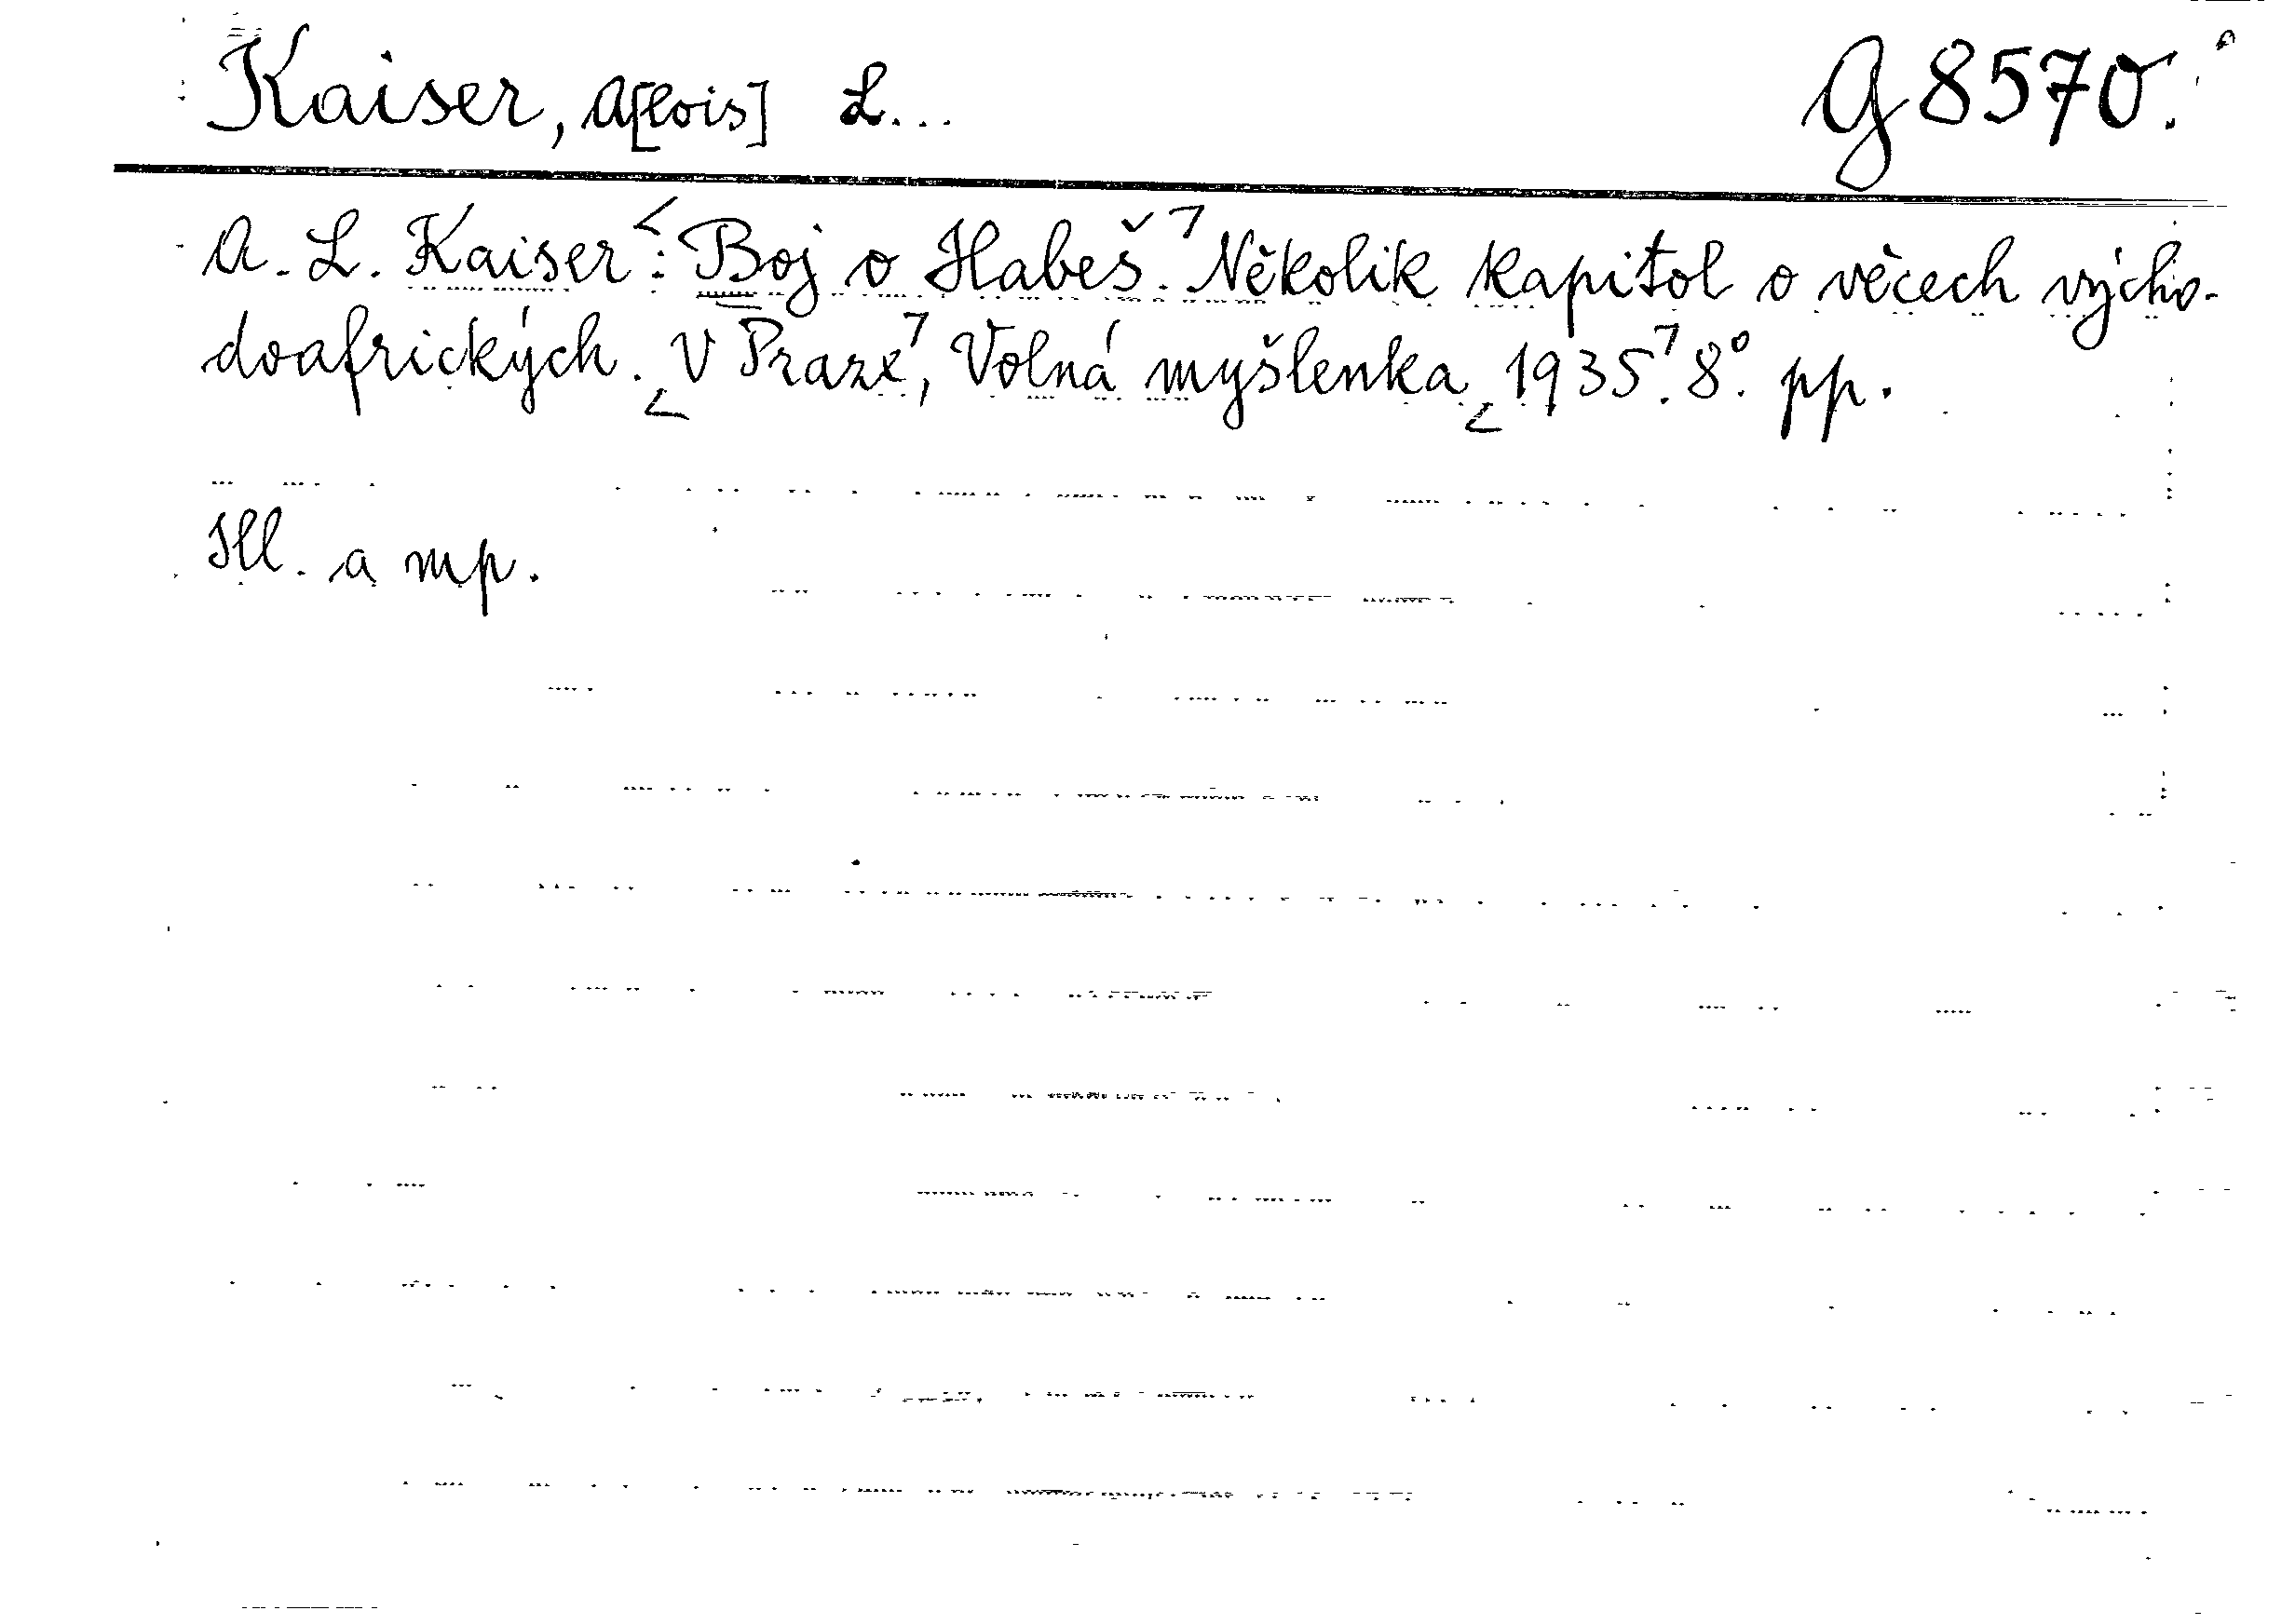 Kaiser, A[lois] L...
G 8570.
A. L. Kaiser: <Boj o Habeš.> Několik kapitol o věcech výcho-
doafrických. <V Praze>, Volná myšlenka <1935>. 8°. pp.
Ill. a mp.